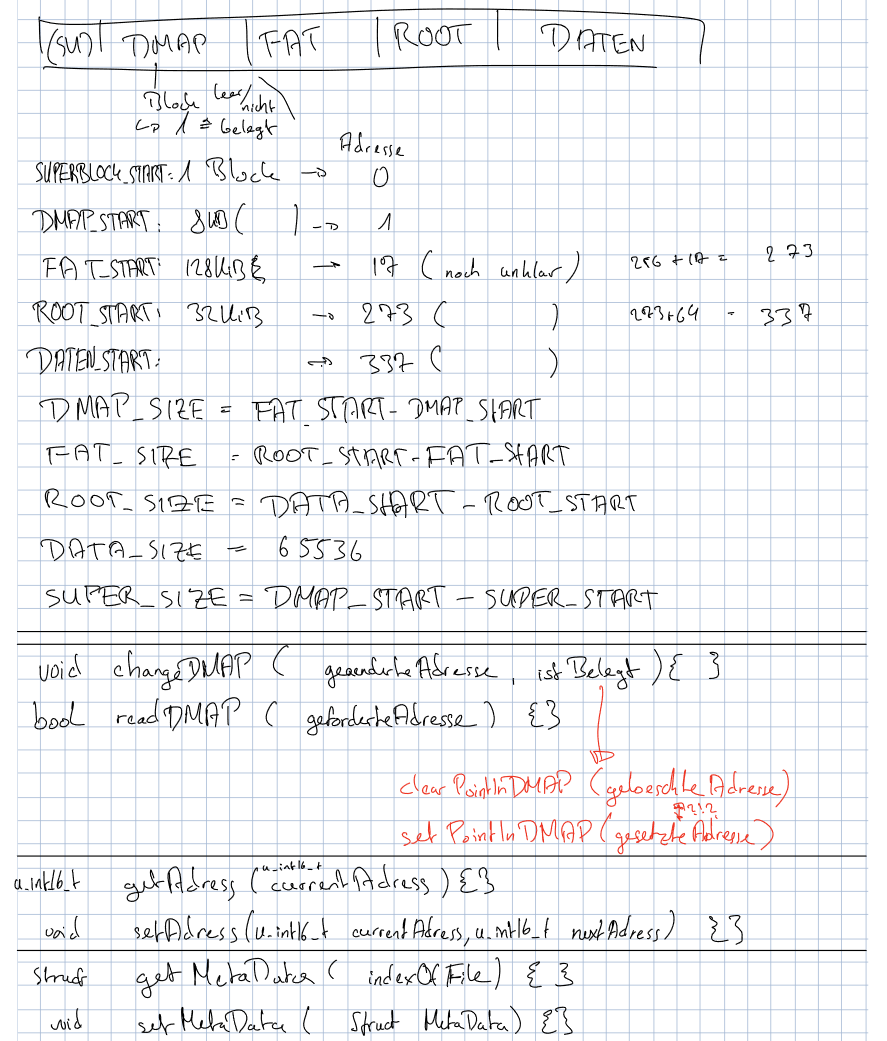 (SU) | DMAP | FAT | ROOT | DATEN
Block leer/nicht
↳ 1 ≙ belegt
Adresse
SUPERBLOCK_START: 1 Block → 0
DMAP_START: ( ) → 1
FAT_START: 128KiB → 17 (noch unklar) 256 + 17 = 273
ROOT_START: 32KiB → 273 ( ) 273+64 = 337
DATEN_START: → 337 ( )
DMAP_SIZE = FAT_START - DMAP_START
FAT_SIZE = ROOT_START - FAT_START
ROOT_SIZE = DATA_START - ROOT_START
DATA_SIZE = 65536
SUPER_SIZE = DMAP_START - SUPER_START
void changeDMAP ( geaenderteAdresse, istBelegt ) { }
bool readDMAP ( geforderteAdresse ) {}
clearPointInDMAP (geloeschteAdresse)
?!?
setPointInDMAP (gesetzteAdresse)
u_int16_t getAdress (u_int16_t currentAdress) {}
void setAdress(u_int16_t currentAdress, u_int16_t nextAdress) {}
struct getMetaData ( indexOfFile) { }
void setMetaData ( Struct MetaData) {}